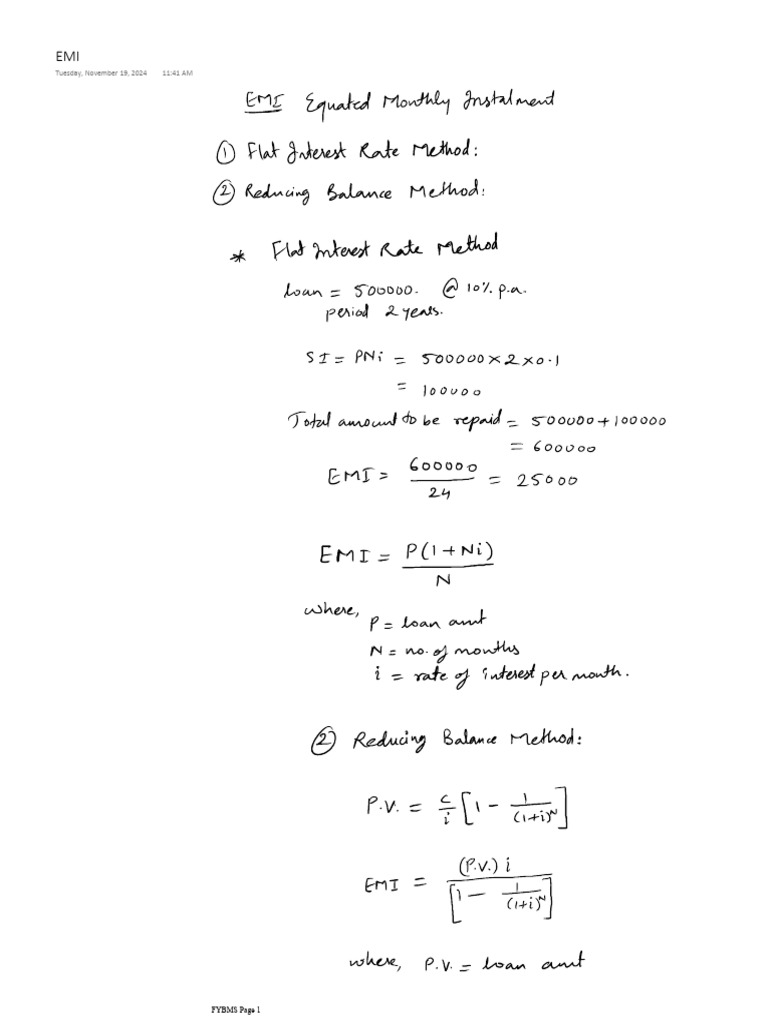 EMI
Tuesday, November 19, 2024 11:41 AM
EMI Equated Monthly Instalment
① Flat Interest Rate Method:
② Reducing Balance Method:
* Flat Interest Rate Method
loan = 500000. @ 10% p.a.
period 2 years.
SI = PNi = 500000 × 2 × 0.1
= 100000
Total amount to be repaid = 500000 + 100000
= 600000
EMI = 600000/24 = 25000
EMI = P(1+Ni)/N
where,
P = loan amt
N = no. of months
i = rate of interest per month.
② Reducing Balance Method:
P.V. = c/i [1 - 1/(1+i)^N]
EMI = (P.V.) i / [1 - 1/(1+i)^N]
where, P.V. = loan amt
FYBMS Page 1